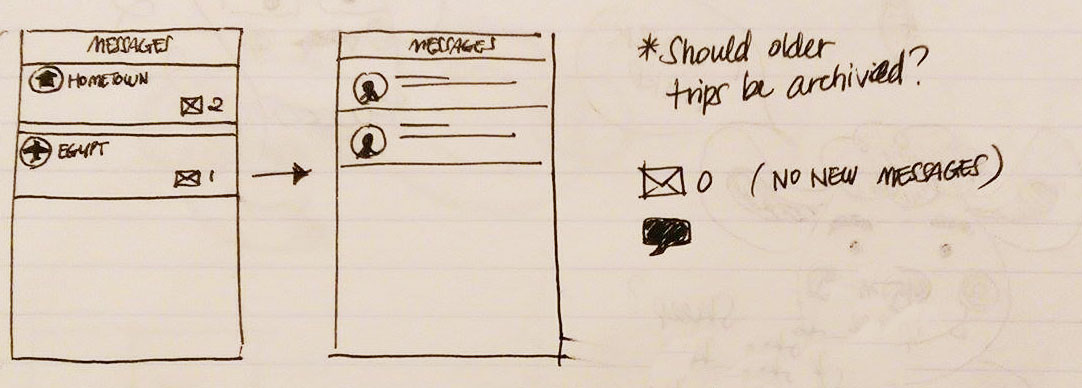 MESSAGES
HOMETOWN
2
EGYPT
1
MESSAGES
*Should older
trips be archived?
0 (NO NEW MESSAGES)